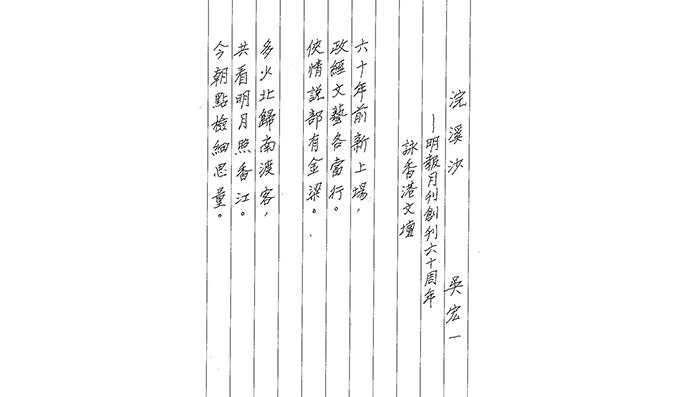 浣溪沙　吳宏一
—明報月刊創刊六十周年
詠香港文壇
六十年前新上場，
政經文藝各當行。
俠情說部有金梁。
多少北歸南渡客，
共看明月照香江。
今朝點檢細思量。